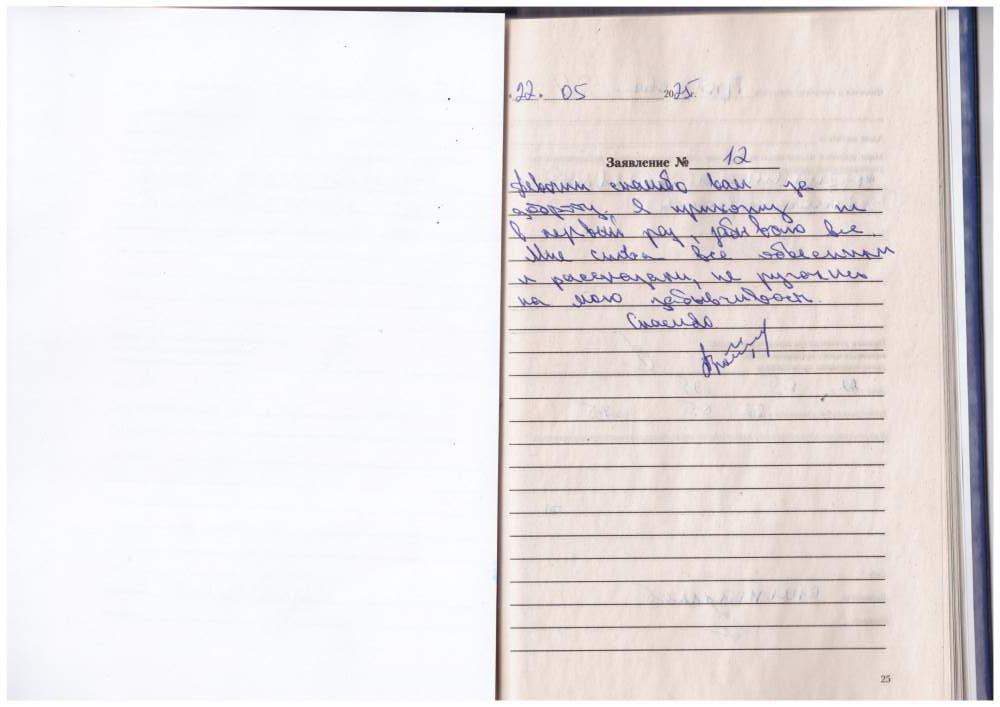 «22» 05 2025г.
Заявление № 12
Девочки спасибо вам за
доброту. Я прихожу не
в первый раз, забываю все.
Мне снова всё объяснили
и рассказали, не ругались
на мою забывчивость.
Спасибо
25